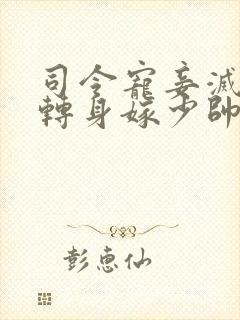 司令寵妾滅
轉身嫁少帥
彭惠仙